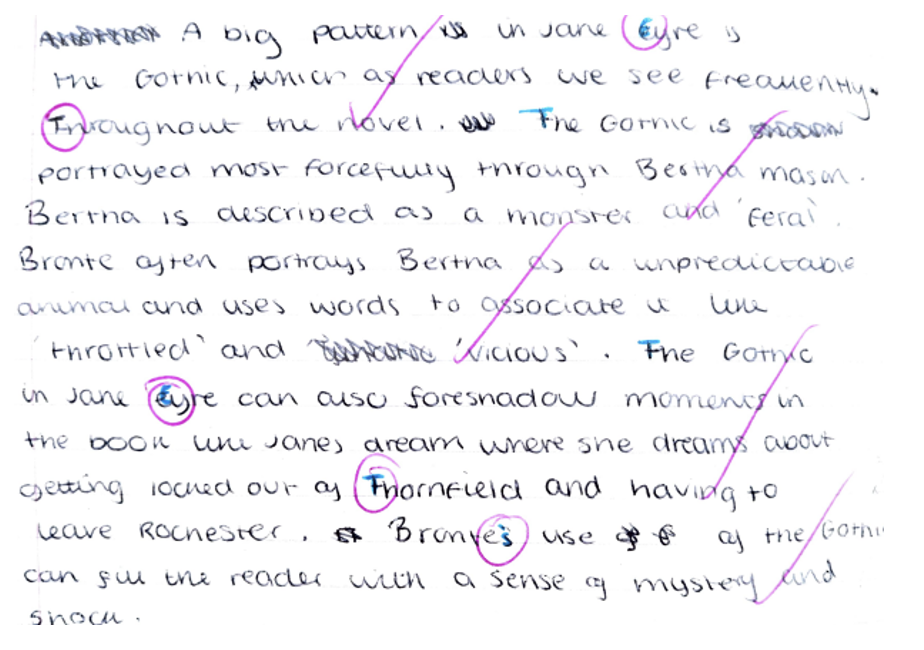 A big pattern in Jane Eyre is
the Gothic, which as readers we see frequently.
Throughout the novel. The Gothic is
portrayed most forcefully through Bertha mason.
Bertha is described as a monster and 'feral'.
Bronte often portrays Bertha as a unpredictable
animal and uses words to associate it like
'throttled' and 'vicious'. The Gothic
in Jane Eyre can also foreshadow moments in
the book like Janes dream where she dreams about
getting locked out of Thornfield and having to
leave Rochester. Bronte's use of the Gothic
can fill the reader with a sense of mystery and
shock.